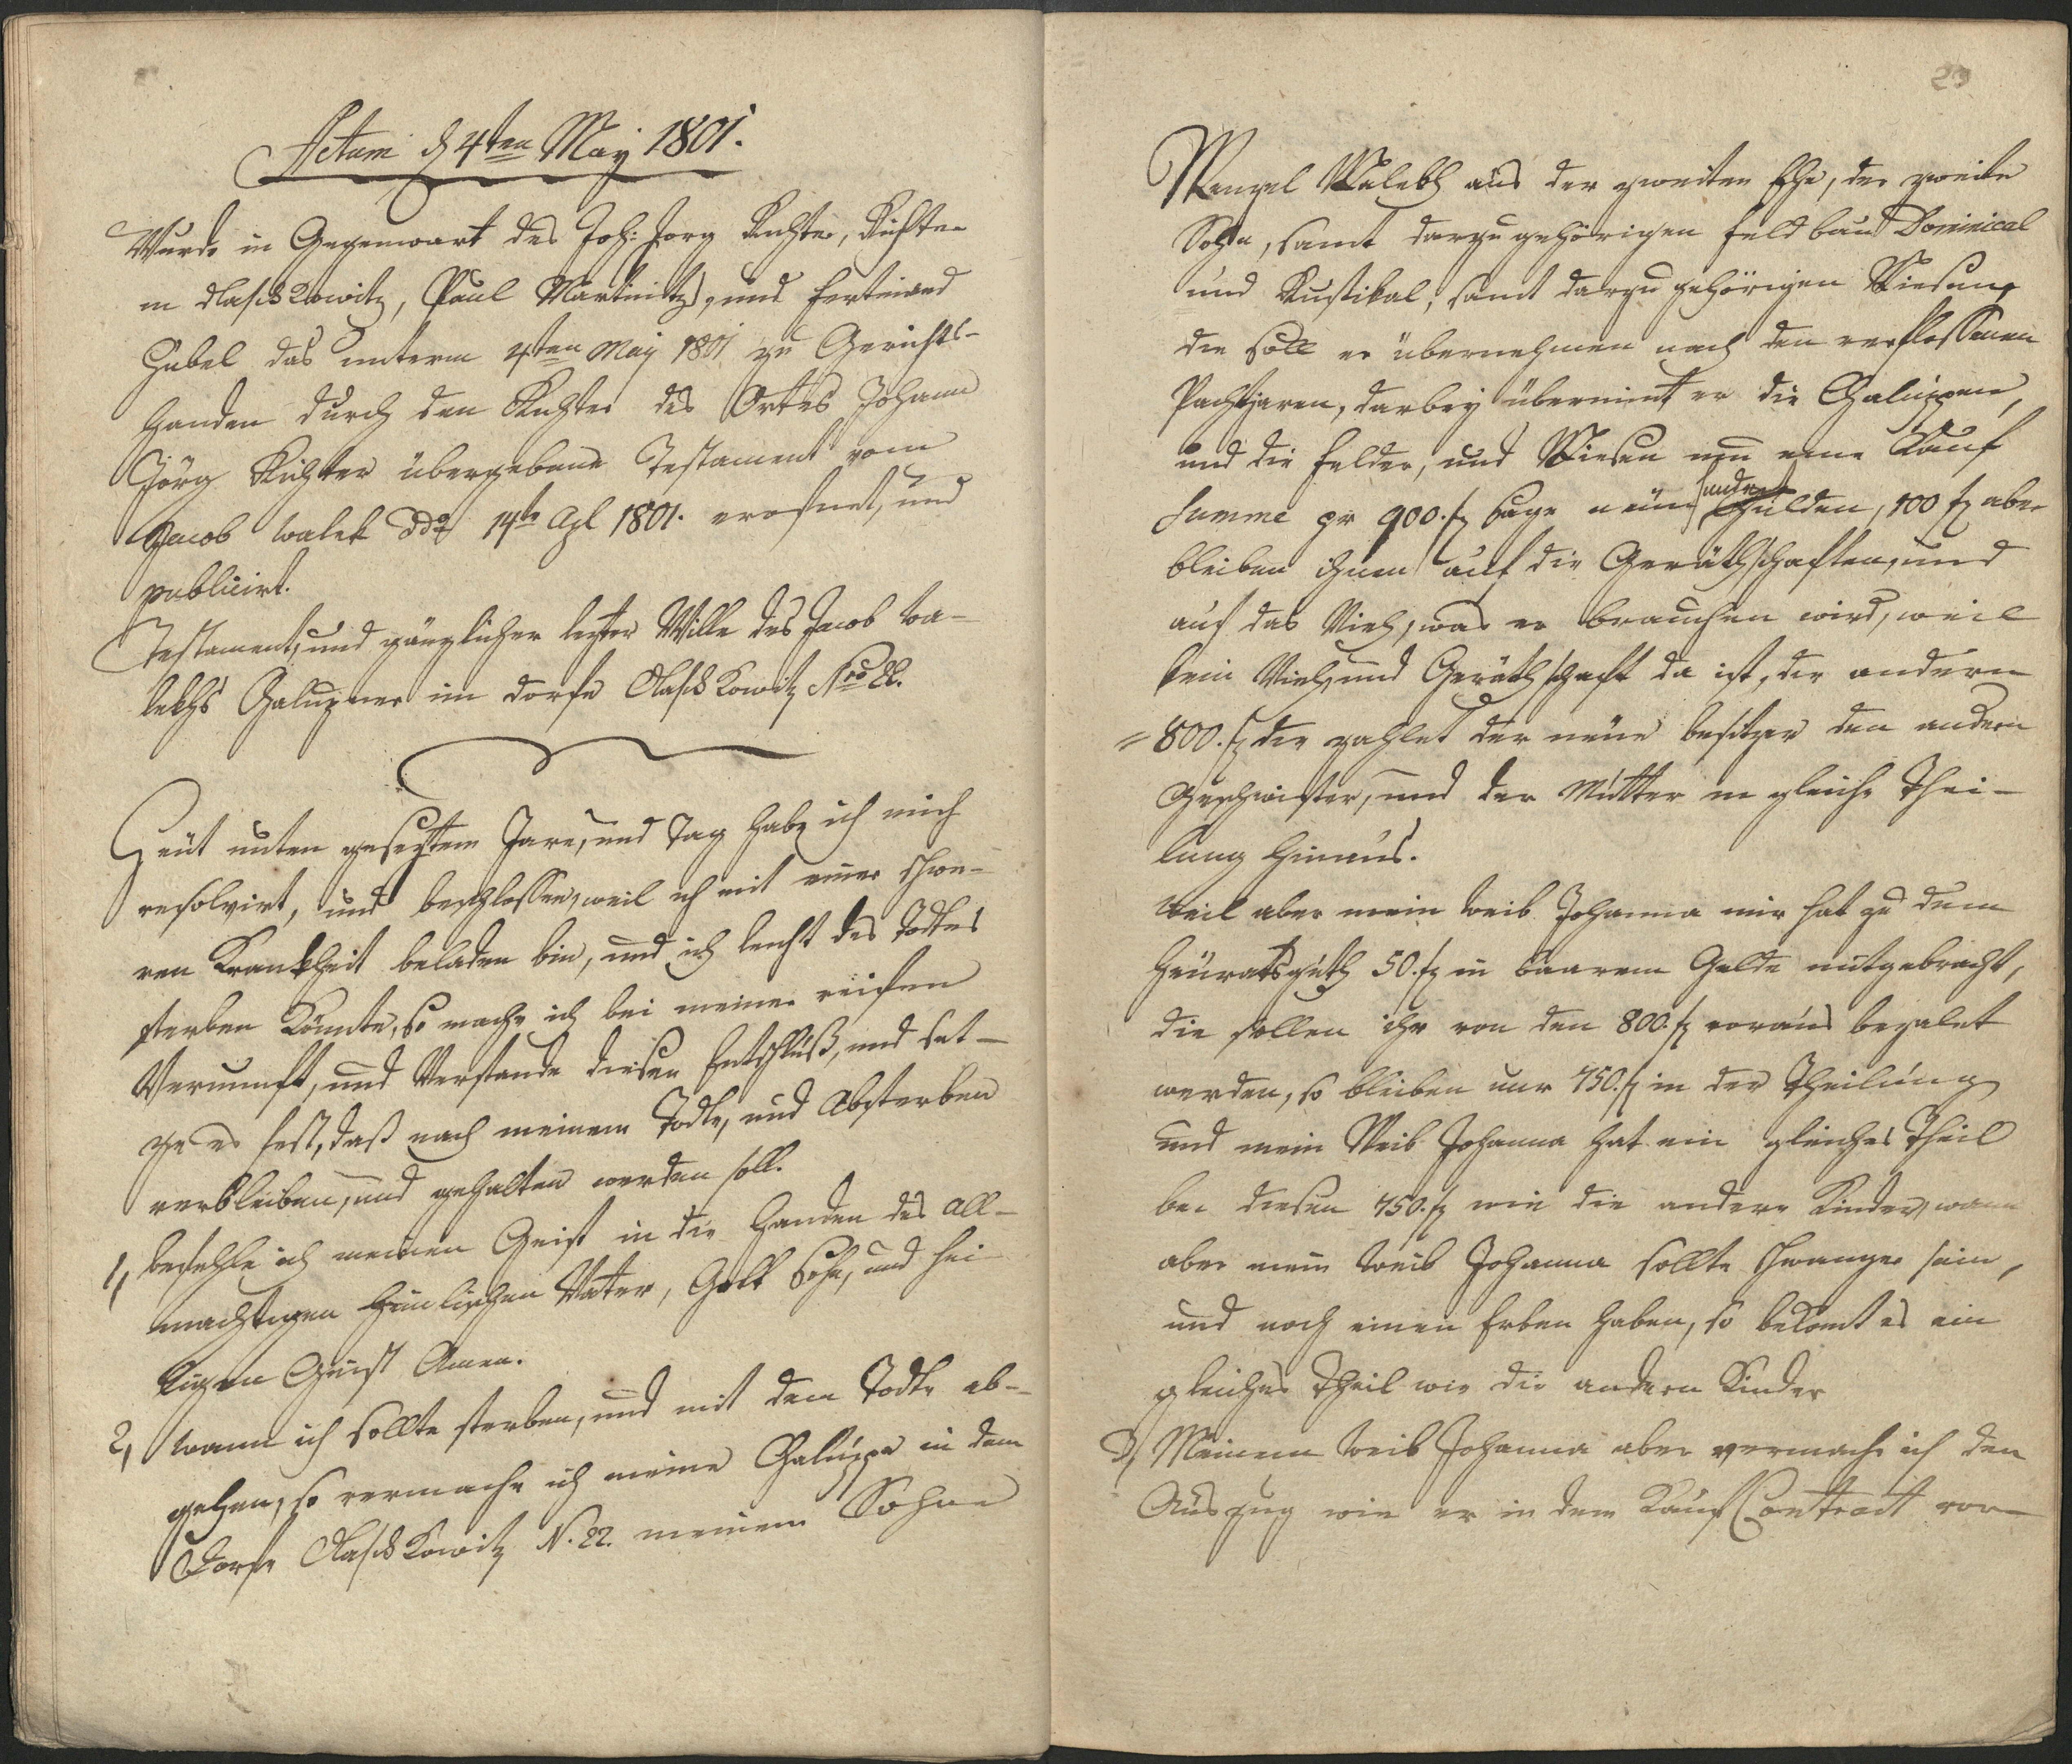 Actum d 4ten May 1801.
Wurde in Gegenwart des Joh: Jorg Richter, Richter
in Olaschkowitz, Paul Martinitz, und Fertinand
Habel das unterm 4ten May 1801 zu Gerichts-
handen durch den Richter des Ortes Johann
Jörg Richter übergebene Testament vom
Jacob Walek ddo 14te Apl 1801. erofnet, und
publicirt.
Testament, und gänzlicher lezter Wille des Jacob Wa-
lekhs Haluzner im Dorfe Olaschkowitz Nro 22.
Heüt unten gesetztem Jare, und Tag habe ich mich
resolvirt, und beschlossen, weil ich mit einer schwe-
ren Krankheit beladen bin, und ich leicht des Todtes
sterben könnte, so mache ich bei meiner reifen
Vernunft, und Verstande diesen Entschluß, und set-
ze es fest, daß nach meinem Todte, und Absterben
verbleiben, und gehalten werden soll.
1, befehle ich meinen Geist in die Handen des All-
machtigen Himlischen Vater, Gott Sohn, und hei-
ligen Geist Amen.
2, Wann ich sollte sterben, und mit dem Todte ab-
gehen, so vermache ich meine Chaluppe in dem
Dorfe Olaschkowitz N. 22. meinem Sohne
29
Wenzel Walekh aus der zweiten Ehe, der zweite
Sohn, samt darzugehörigen Feldbau Dominical
und Rustikal, samt darzu gehörigen Wiesen,
die soll er übernehmen nach den verflossenen
Pachtjaren, darbey übernimt er die Chaluppen,
und die Felder, und Wiesen um eine Kauf
Summe pr 900. f sage neün hundert Gulden, 100 f aber
bleiben ihnen auf die Geräthschaften, und
auf das Vieh, was er brauchen wird, weil
kein Vieh, und Geräthschaft da ist, die andern
= 800. f die zahlet der neüe besitzer den andern
Geschwister, und der Mutter in gleiche Thei-
lung hinaus.
Weil aber mein Weib Johanna mir hat zu dem
Heüratsguth 50. f in baarem Gelde mitgebracht,
die sollen ihr von den 800. f voraus bezalet
werden, so bleiben nur 750. f in der Theilung
und mein Weib Johanna hat ein gleiches Theil
bei diesen 750. f wie die andere Kinder, wann
aber mein Weib Johanna sollte schwanger sein,
und noch einen Erben haben, so bekomt es ein
gleiches Theil wie die andern Kinder
3, Meinem Weib Johanna aber vermache ich den
Auszug wie er in dem Kauf Contract vor-